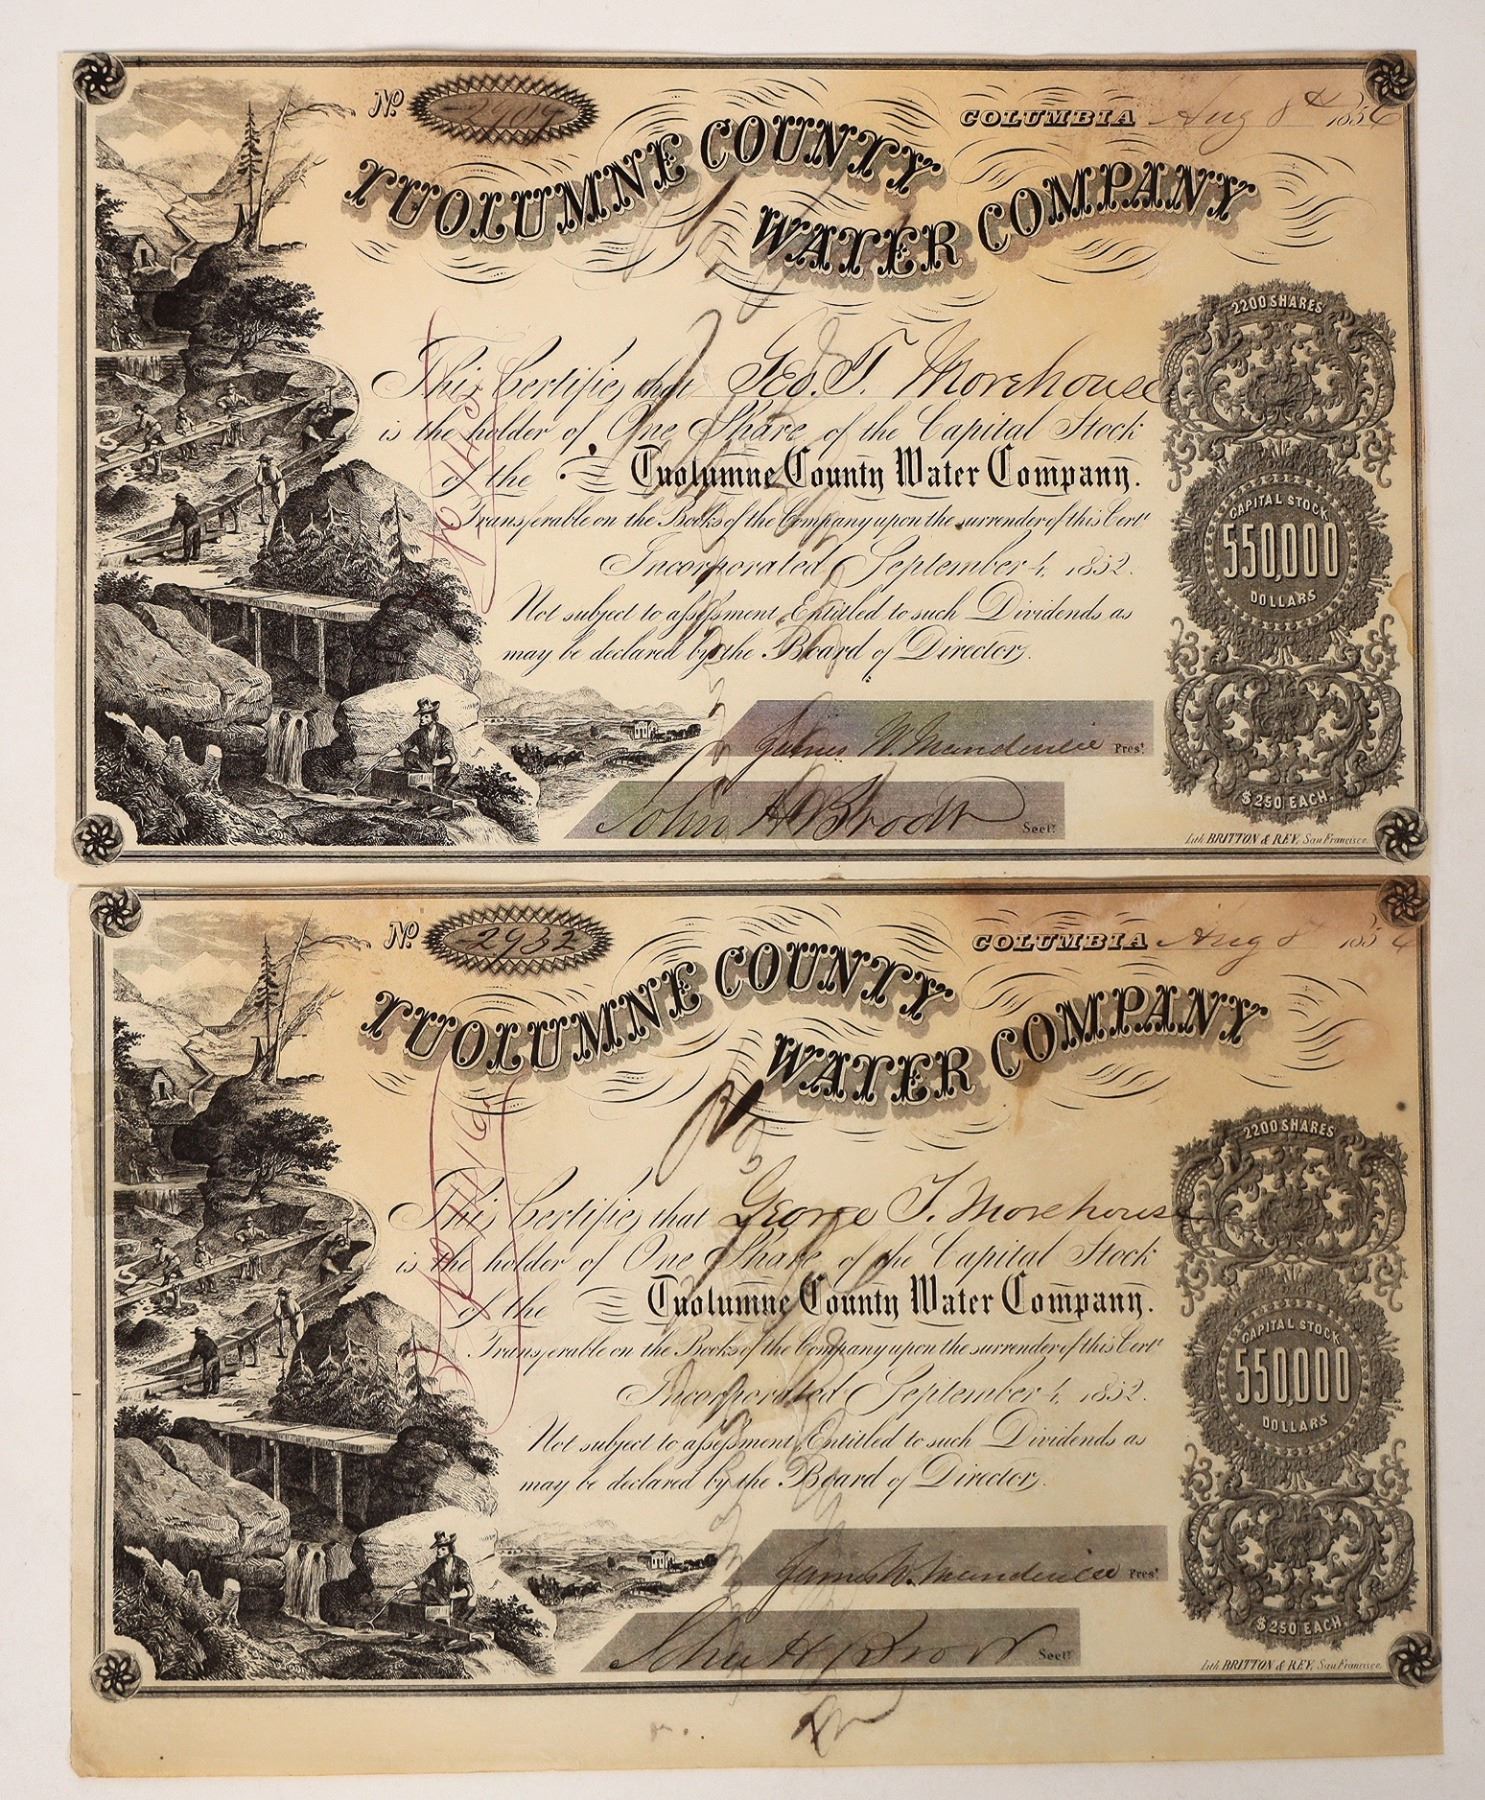 No. 2909
COLUMBIA Aug 8th 1856
TUOLUMNE COUNTY
WATER COMPANY
2200 SHARES
This Certifies that Geo. T. Morehouse
is the holder of One Share of the Capital Stock
of the Tuolumne County Water Company.
Transferable on the Books of the Company upon the surrender of this Cert.
CAPITAL STOCK
550,000
DOLLARS
Incorporated September 4, 1852.
Not subject to assessment, Entitled to such Dividends as
may be declared by the Board of Directors.
James W. Mandeville Prest.
$250 EACH.
John H. Brodt Secty.
Lith. BRITTON & REY, San Francisco.
No. 2932
COLUMBIA Aug 8 1856
TUOLUMNE COUNTY
WATER COMPANY
2200 SHARES
This Certifies that George T. Morehouse
is the holder of One Share of the Capital Stock
of the Tuolumne County Water Company.
Transferable on the Books of the Company upon the surrender of this Cert.
CAPITAL STOCK
550,000
DOLLARS
Incorporated September 4, 1852.
Not subject to assessment, Entitled to such Dividends as
may be declared by the Board of Directors.
James W. Mandeville Prest.
$250 EACH.
John H. Brodt Secty.
Lith. BRITTON & REY, San Francisco.